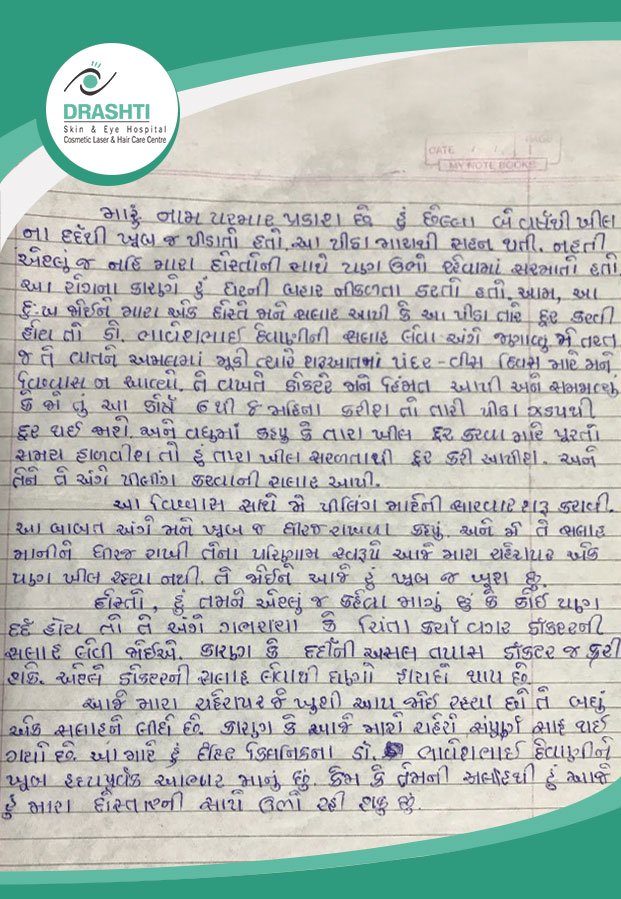 DRASHTI
Skin & Eye Hospital
Cosmetic Laser & Hair Care Centre
DATE
PAGE
MY NOTE BOOKS
મારૂં નામ પરમાર પ્રકાશ છે. હું છેલ્લા બે વર્ષથી ખીલ
ના દર્દથી ખુબ જ પીડાતો હતો. આ પીડા મારાથી સહન થતી. નહતી
એટલું જ નહિ મારા દોસ્તોની સાથે પણ ઉભો રહેવામાં સરમાતો હતો.
આ રોગના કારણે હું ઘરની બહાર નીકળતા કરતો હતો. આમ, આ
દુ:ખ જોઈને મારા એક દોસ્તે મને સલાહ આપી કે આ પીડા તારે દૂર કરવી
હોય તો ડો. ભાવેશભાઈ દેવાણીની સલાહ લેવા અંગે જણાવ્યું મેં તરત
જ તે વાતને અમલમાં મૂકી ત્યારે શરૂઆતમાં પંદર-વીસ દિવસ માટે મને
વિશ્વાસ ન આવ્યો. તે વખતે ડોકટરે મને હિંમત આપી અને સમજાવ્યું
કે જો તું આ કોર્ષ ૬ થી ૭ મહિના કરીશ તો તારી પીડા ઝડપથી
દૂર થઈ જશે. અને વધુમાં કહ્યુ કે તારા ખીલ દૂર કરવા માટે પૂરતો
સમય ફાળવીશ તો હું તારા ખીલ સરળતાથી દૂર કરી આપીશ. અને
તેને તે અંગે પીલીંગ કરવાની સલાહ આપી.
આ વિશ્વાસ સાથે મેં પીલિંગ માટેની સારવાર શરૂ કરાવી.
આ બાબત અંગે મને ખુબ જ ધીરજ રાખવા કહ્યું. અને મેં તે સલાહ
માનીને ધીરજ રાખી તેના પરિણામ સ્વરૂપે આજે મારા ચહેરાપર એક
પણ ખીલ રહ્યા નથી. તે જોઈને આજે હું ખુબ જ ખુશ છું.
દોસ્તો, હું તમને એટલું જ કહેવા માગું છું કે કોઈ પણ
દર્દ હોય તો તે અંગે ગભરાયા કે ચિંતા કર્યા વગર ડોકટરની
સલાહ લેવી જોઈએ. કારણ કે દર્દોની અસલ તપાસ ડોકટર જ કરી
શકે. એટલે ડોકટરની સલાહ લેવાથી ઘણો ફાયદો થાય છે.
આજે મારા ચહેરાપર જે ખુશી આપ જોઈ રહ્યા છો તે બધું
એક સલાહને લીધે છે. કારણ કે આજે મારો ચહેરો સંપુર્ણ સાફ થઈ
ગયો છે. આ માટે હું ક્લિનિકના ડો. ભાવેશભાઈ દેવાણીને
ખુબ હૃદયપૂર્વક આભાર માનું છું. કેમ કે તેમની સલાહથી હું આજે
હું મારા દોસ્તારની સાથે ઉભો રહી શકુ છું.